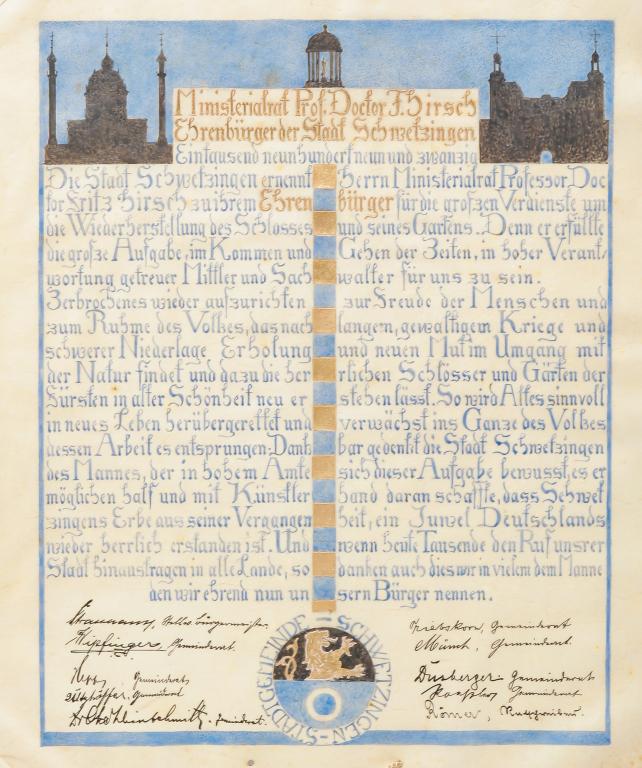 Ministerialrat Prof. Doctor F. Hirsch
Ehrenbürger der Stadt Schwetzingen
Eintausend neunhundert neun und zwanzig
Die Stadt Schwetzingen ernennt Herrn Ministerialrat Professor Doc
tor Fritz Hirsch zu ihrem Ehrenbürger für die groszen Verdienste um
die Wiederherstellung des Schlosses und seines Gartens. Denn er erfüllte
die große Aufgabe, im Kommen und Gehen der Zeiten, in hoher Verant-
wortung getreuer Mittler und Sachwalter für uns zu sein.
Zerbrochenes wieder aufzurichten zur Freude der Menschen und
zum Ruhme des Volkes, das nach langem, gewaltigem Kriege und
schwerer Niederlage Erholung und neuen Mut im Umgang mit
der Natur findet und dazu die herrlichen Schlösser und Gärten der
Fürsten in alter Schönheit neu erstehen lässt. So wird Altes sinnvoll
in neues Leben herübergerettet und verwächst ins Ganze des Volkes
dessen Arbeit es entsprungen. Dankbar gedenkt die Stadt Schwetzingen
des Mannes, der in hohem Amte sich dieser Aufgabe bewusst, es er
möglichen half und mit Künstlerhand daran schaffte, dass Schwet
zingens Erbe aus seiner Vergangenheit, ein Juwel Deutschlands
wieder herrlich erstanden ist. Und wenn heute Tausende den Ruf unsrer
Stadt hinaustragen in alle Lande, so danken auch dies wir in vielem dem Manne
den wir ehrend nun unsern Bürger nennen.
Stellv. Bürgermeister
Gemeinderat
Wipfinger, Gemeinderat
Münch, Gemeinderat
Gemeinderat
Dusberger Gemeinderat
Gemeinderat
Gemeinderat
Gemeinderat
Römer,
STADTGEMEINDE - SCHWETZINGEN -